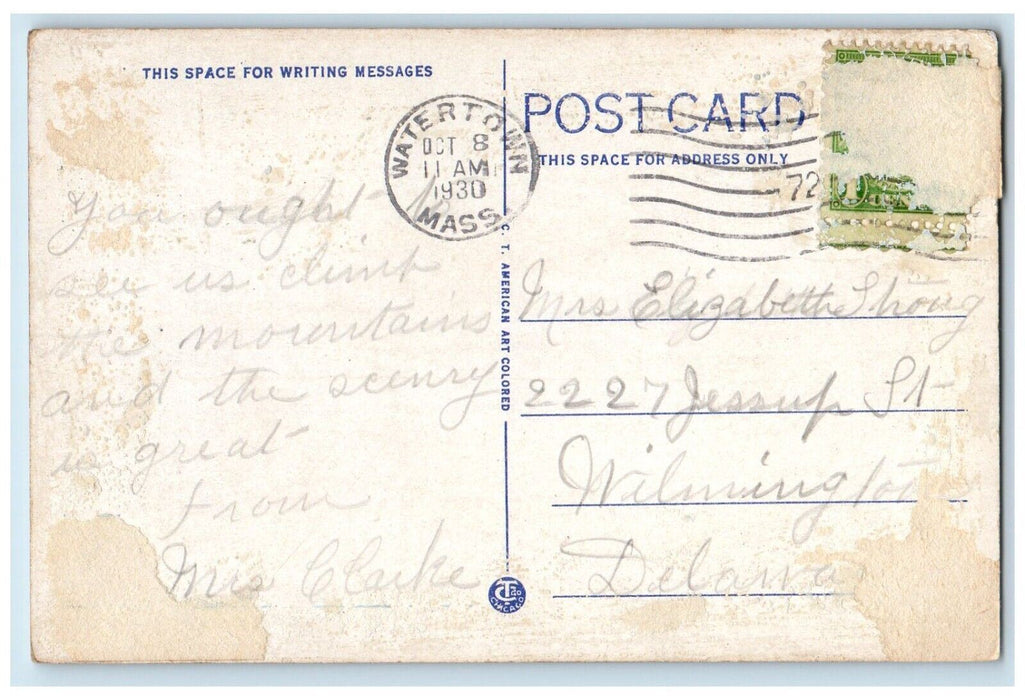 THIS SPACE FOR WRITING MESSAGES
You ought to
see us climb
the mountains
and the scenry
is great
from
Mrs Clarke
WATERTOWN
OCT 8
11 AM
1930
MASS.
C. T. AMERICAN ART COLORED
CT CO
CHICAGO
POST CARD
THIS SPACE FOR ADDRESS ONLY
72
Mrs Elizabeth Strong
2227 Jessup St
Wilmington
Delawa